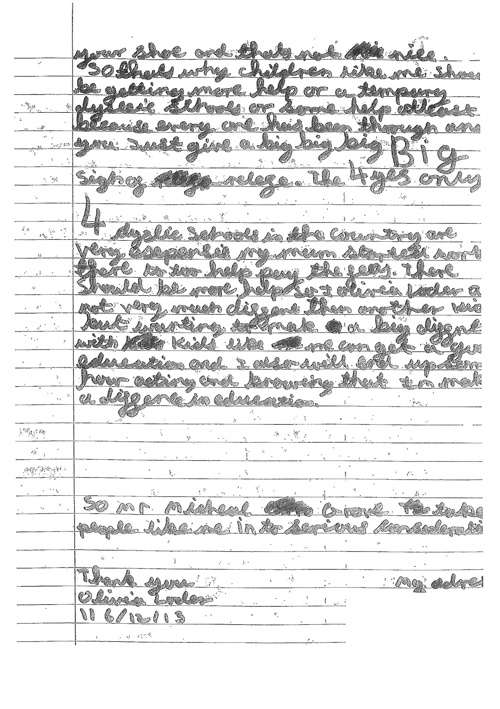 your shoe and thats not nile.
So thats why children like me shou
be getting more help or a tempury
dyslexic schools or some help atleast
because every one has been through and
you Just give a big big big Big
Sigh of relege. The 4 yes only
4 dyslic schools in the country are
very my mum
there to help pay the fees. There
Should be more help. So I olivia Loder a
not very much diggene then another
but wanting to mak a big diggene
with Kids like me can get a
education and I also will end up
how acting and knowing that Im mak
a diggene in education.
So mr Micheal Grove to take
people like me in to serious consideratio
Thank you my adres
Olivia Loder
11 6/12/13